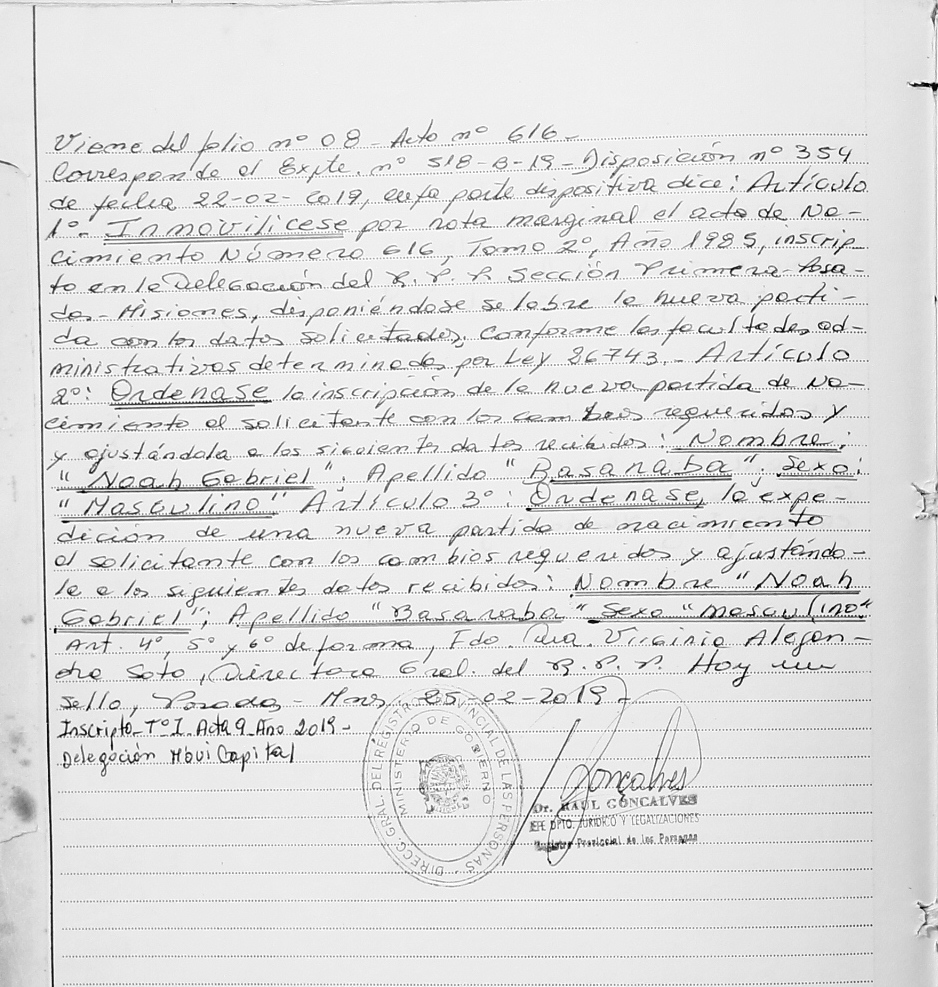 Viene del folio nº 08 - Acta nº 616 -
Corresponde al Expte. nº 518-B-19 - Disposición nº 354
de fecha 22-02-2019, cuya parte dispositiva dice: Artículo
1º- Inmovilícese por nota marginal el acta de Na-
cimiento Número 616, Tomo 2º, Año 1985, inscrip-
ta en la Delegación del R. P. P. Sección Primera-Posa-
das-Misiones, disponiéndose se labre la nueva parti-
da con los datos solicitados, conforme las facultades ad-
ministrativas determinadas por Ley 26743.- Artículo
2º: Ordenase la inscripción de la nueva partida de Na-
cimiento al solicitante con los cambios requeridos y
y ajustándola a los siguientes datos recibidos: Nombre:
"Noah Gabriel"; Apellido "Basanaba"; Sexo:
"Masculino" Artículo 3º: Ordenase, la expe-
dición de una nueva partida de nacimiento
al solicitante con los cambios requeridos y ajustándo-
la a los siguientes datos recibidos: Nombre "Noah
Gabriel"; Apellido "Basanaba" Sexo "Masculino"
Art. 4º, 5º y 6º de forma, Fdo. Dra. Virginia Alejan-
dra Soto, Directora Gral. del R. P. P. Hay un
sello, Posadas - Mnes, 25-02-2019-
Inscripto Tº I Acta 9 Año 2019-
Delegación Móvi Capital
DIRECC. GRAL. DEL REGISTRO PROVINCIAL DE LAS PERSONAS
MINISTERIO DE GOBIERNO
Goncalves
Dr. RAUL GONCALVES
DPTO. JURIDICO Y LEGALIZACIONES
Registro Provincial de las Personas